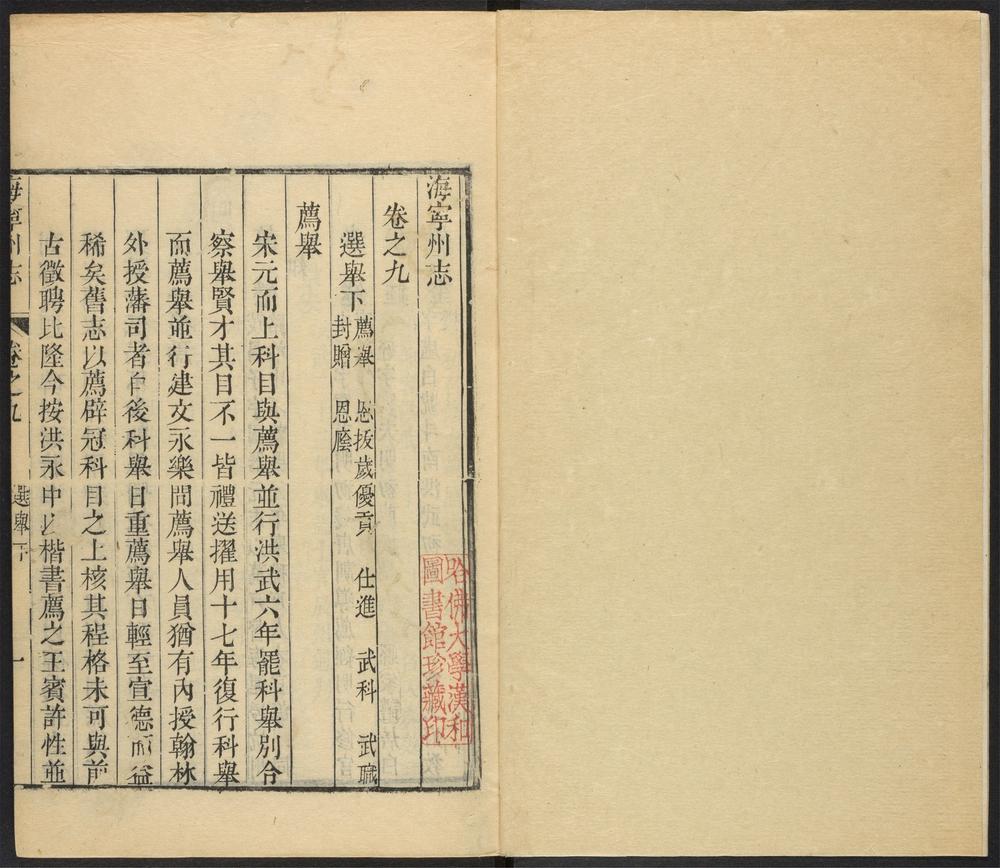 海寧州志
卷之九
選舉下
薦舉 恩拔歲優貢 仕進 武科 武職
封贈 恩廕
薦舉
宋元而上科目與薦舉並行洪武六年罷科舉別合
察舉賢才其目不一皆禮送擢用十七年復行科舉
而薦舉並行建文永樂間薦舉人員猶有內授翰林
外授藩司者自後科舉日重薦舉日輕至宣德而益
稀矣舊志以薦辟冠科目之上核其程格未可與前
古徵聘比隆今按洪永中以楷書薦之王賓許性並
海寧州志 卷之九 選舉下 一
哈佛大學漢和
圖書館珍藏印